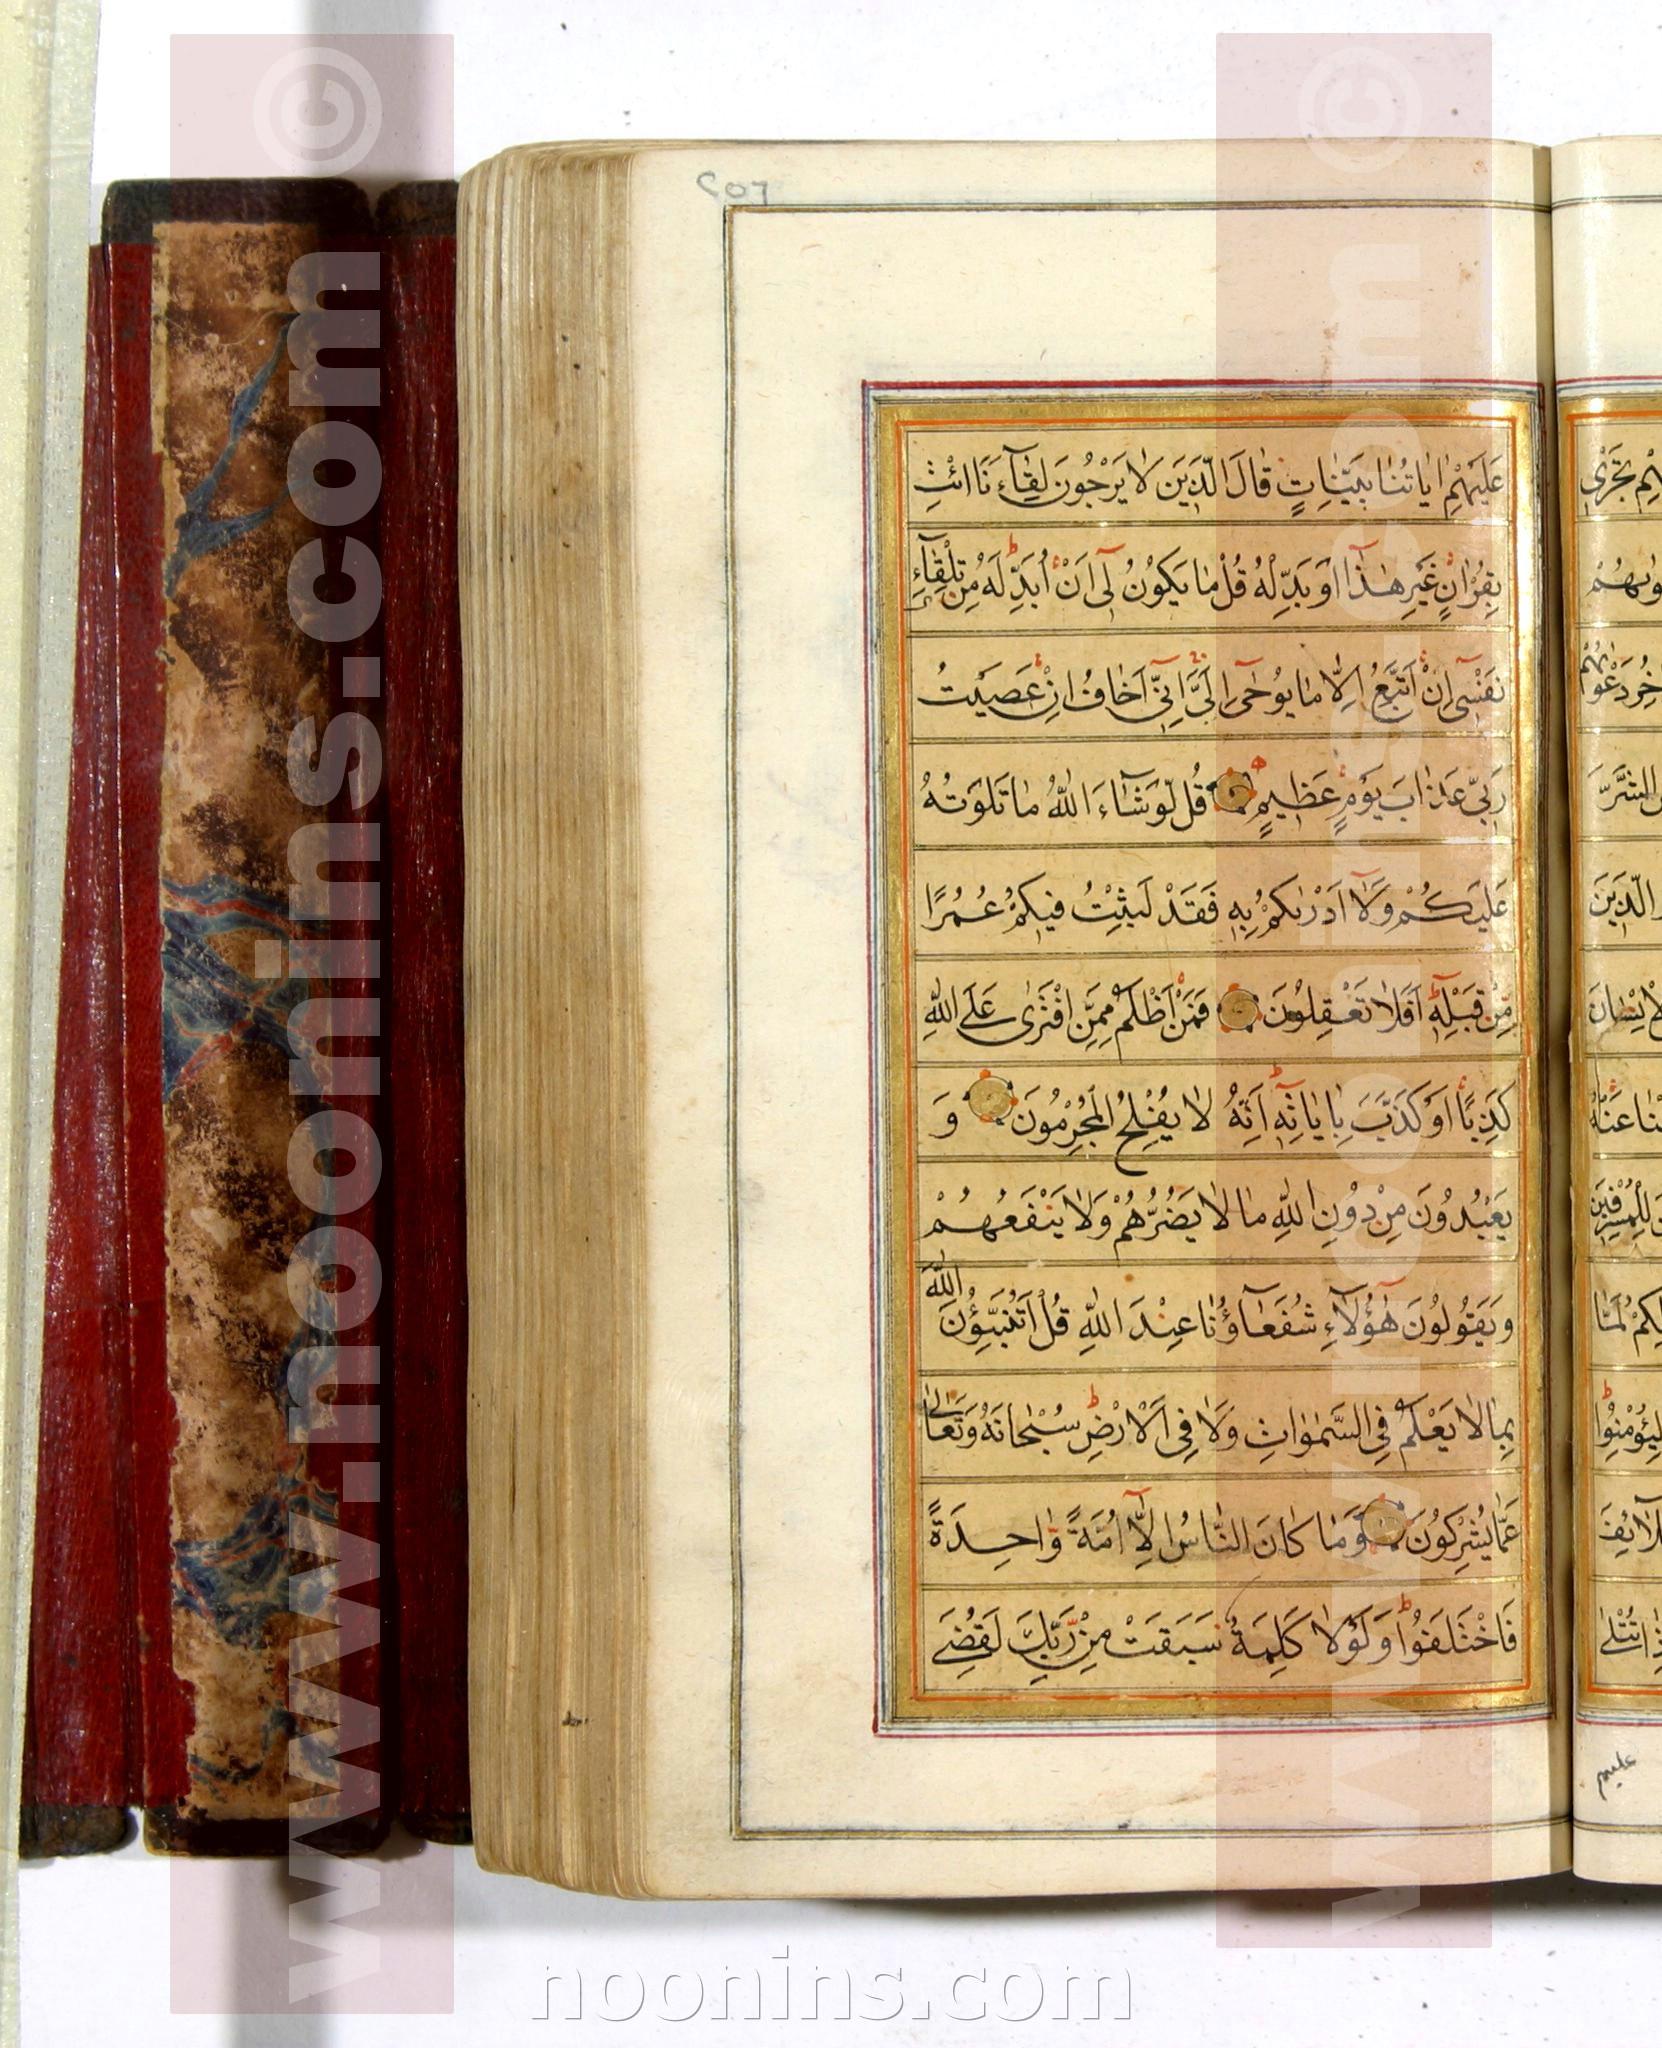 ٢٥٦
عَلَيْهِمْ اٰيَاتُنَا بَيِّنَاتٍ قَالَ الَّذِينَ لَا يَرْجُونَ لِقَآءَنَا ائْتِ
بِقُرْاٰنٍ غَيْرِ هٰذَا اَوْ بَدِّلْهُ قُلْ مَا يَكُونُ لِٓى اَنْ اُبَدِّلَهُ مِنْ تِلْقَآءِ
نَفْسِٓى اِنْ اَتَّبِعُ اِلَّا مَا يُوحٰٓى اِلَىَّ اِنِّٓى اَخَافُ اِنْ عَصَيْتُ
رَبِّى عَذَابَ يَوْمٍ عَظِيمٍ قُلْ لَوْ شَآءَ اللّٰهُ مَا تَلَوْتُهُ
عَلَيْكُمْ وَلَآ اَدْرٰىكُمْ بِهٖ فَقَدْ لَبِثْتُ فِيكُمْ عُمُرًا
مِنْ قَبْلِهٖٓ اَفَلَا تَعْقِلُونَ فَمَنْ اَظْلَمُ مِمَّنِ افْتَرٰى عَلَى اللّٰهِ
كَذِبًا اَوْ كَذَّبَ بِاٰيَاتِهٖٓ اِنَّهُ لَا يُفْلِحُ الْمُجْرِمُونَ وَ
يَعْبُدُونَ مِنْ دُونِ اللّٰهِ مَا لَا يَضُرُّهُمْ وَلَا يَنْفَعُهُمْ
وَيَقُولُونَ هٰٓؤُلَآءِ شُفَعَآؤُنَا عِنْدَ اللّٰهِ قُلْ اَتُنَبِّؤُنَ اللّٰهَ
بِمَا لَا يَعْلَمُ فِى السَّمٰوَاتِ وَلَا فِى الْاَرْضِ سُبْحَانَهُ وَتَعَالٰى
عَمَّا يُشْرِكُونَ وَمَا كَانَ النَّاسُ اِلَّآ اُمَّةً وَّاحِدَةً
فَاخْتَلَفُوا وَلَوْلَا كَلِمَةٌ سَبَقَتْ مِنْ رَبِّكَ لَقُضِىَ
عليهم
www.noonins.com ©
www.noonins.com ©
noonins.com